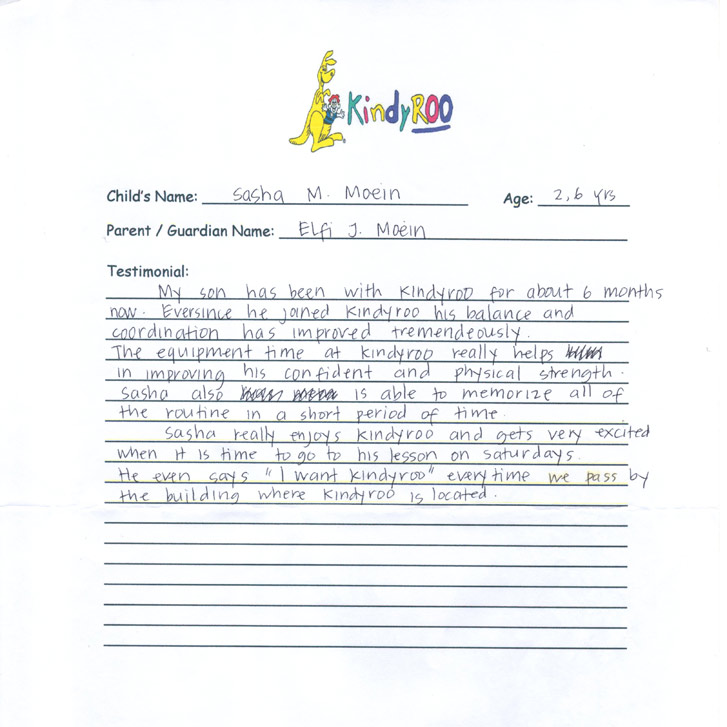 KindyROO
Child's Name: Sasha M. Moein Age: 2,6 yrs
Parent / Guardian Name: Elfi J. Moein
Testimonial:
My son has been with Kindyroo for about 6 months
now. Eversince he joined Kindyroo his balance and
coordination has improved tremendeously.
The equipment time at kindyroo really helps
in improving his confident and physical strength.
Sasha also is able to memorize all of
the routine in a short period of time.
Sasha really enjoys kindyroo and gets very excited
when it is time to go to his lesson on saturdays.
He even says "I want kindyroo" everytime we pass by
the building where kindyroo is located.